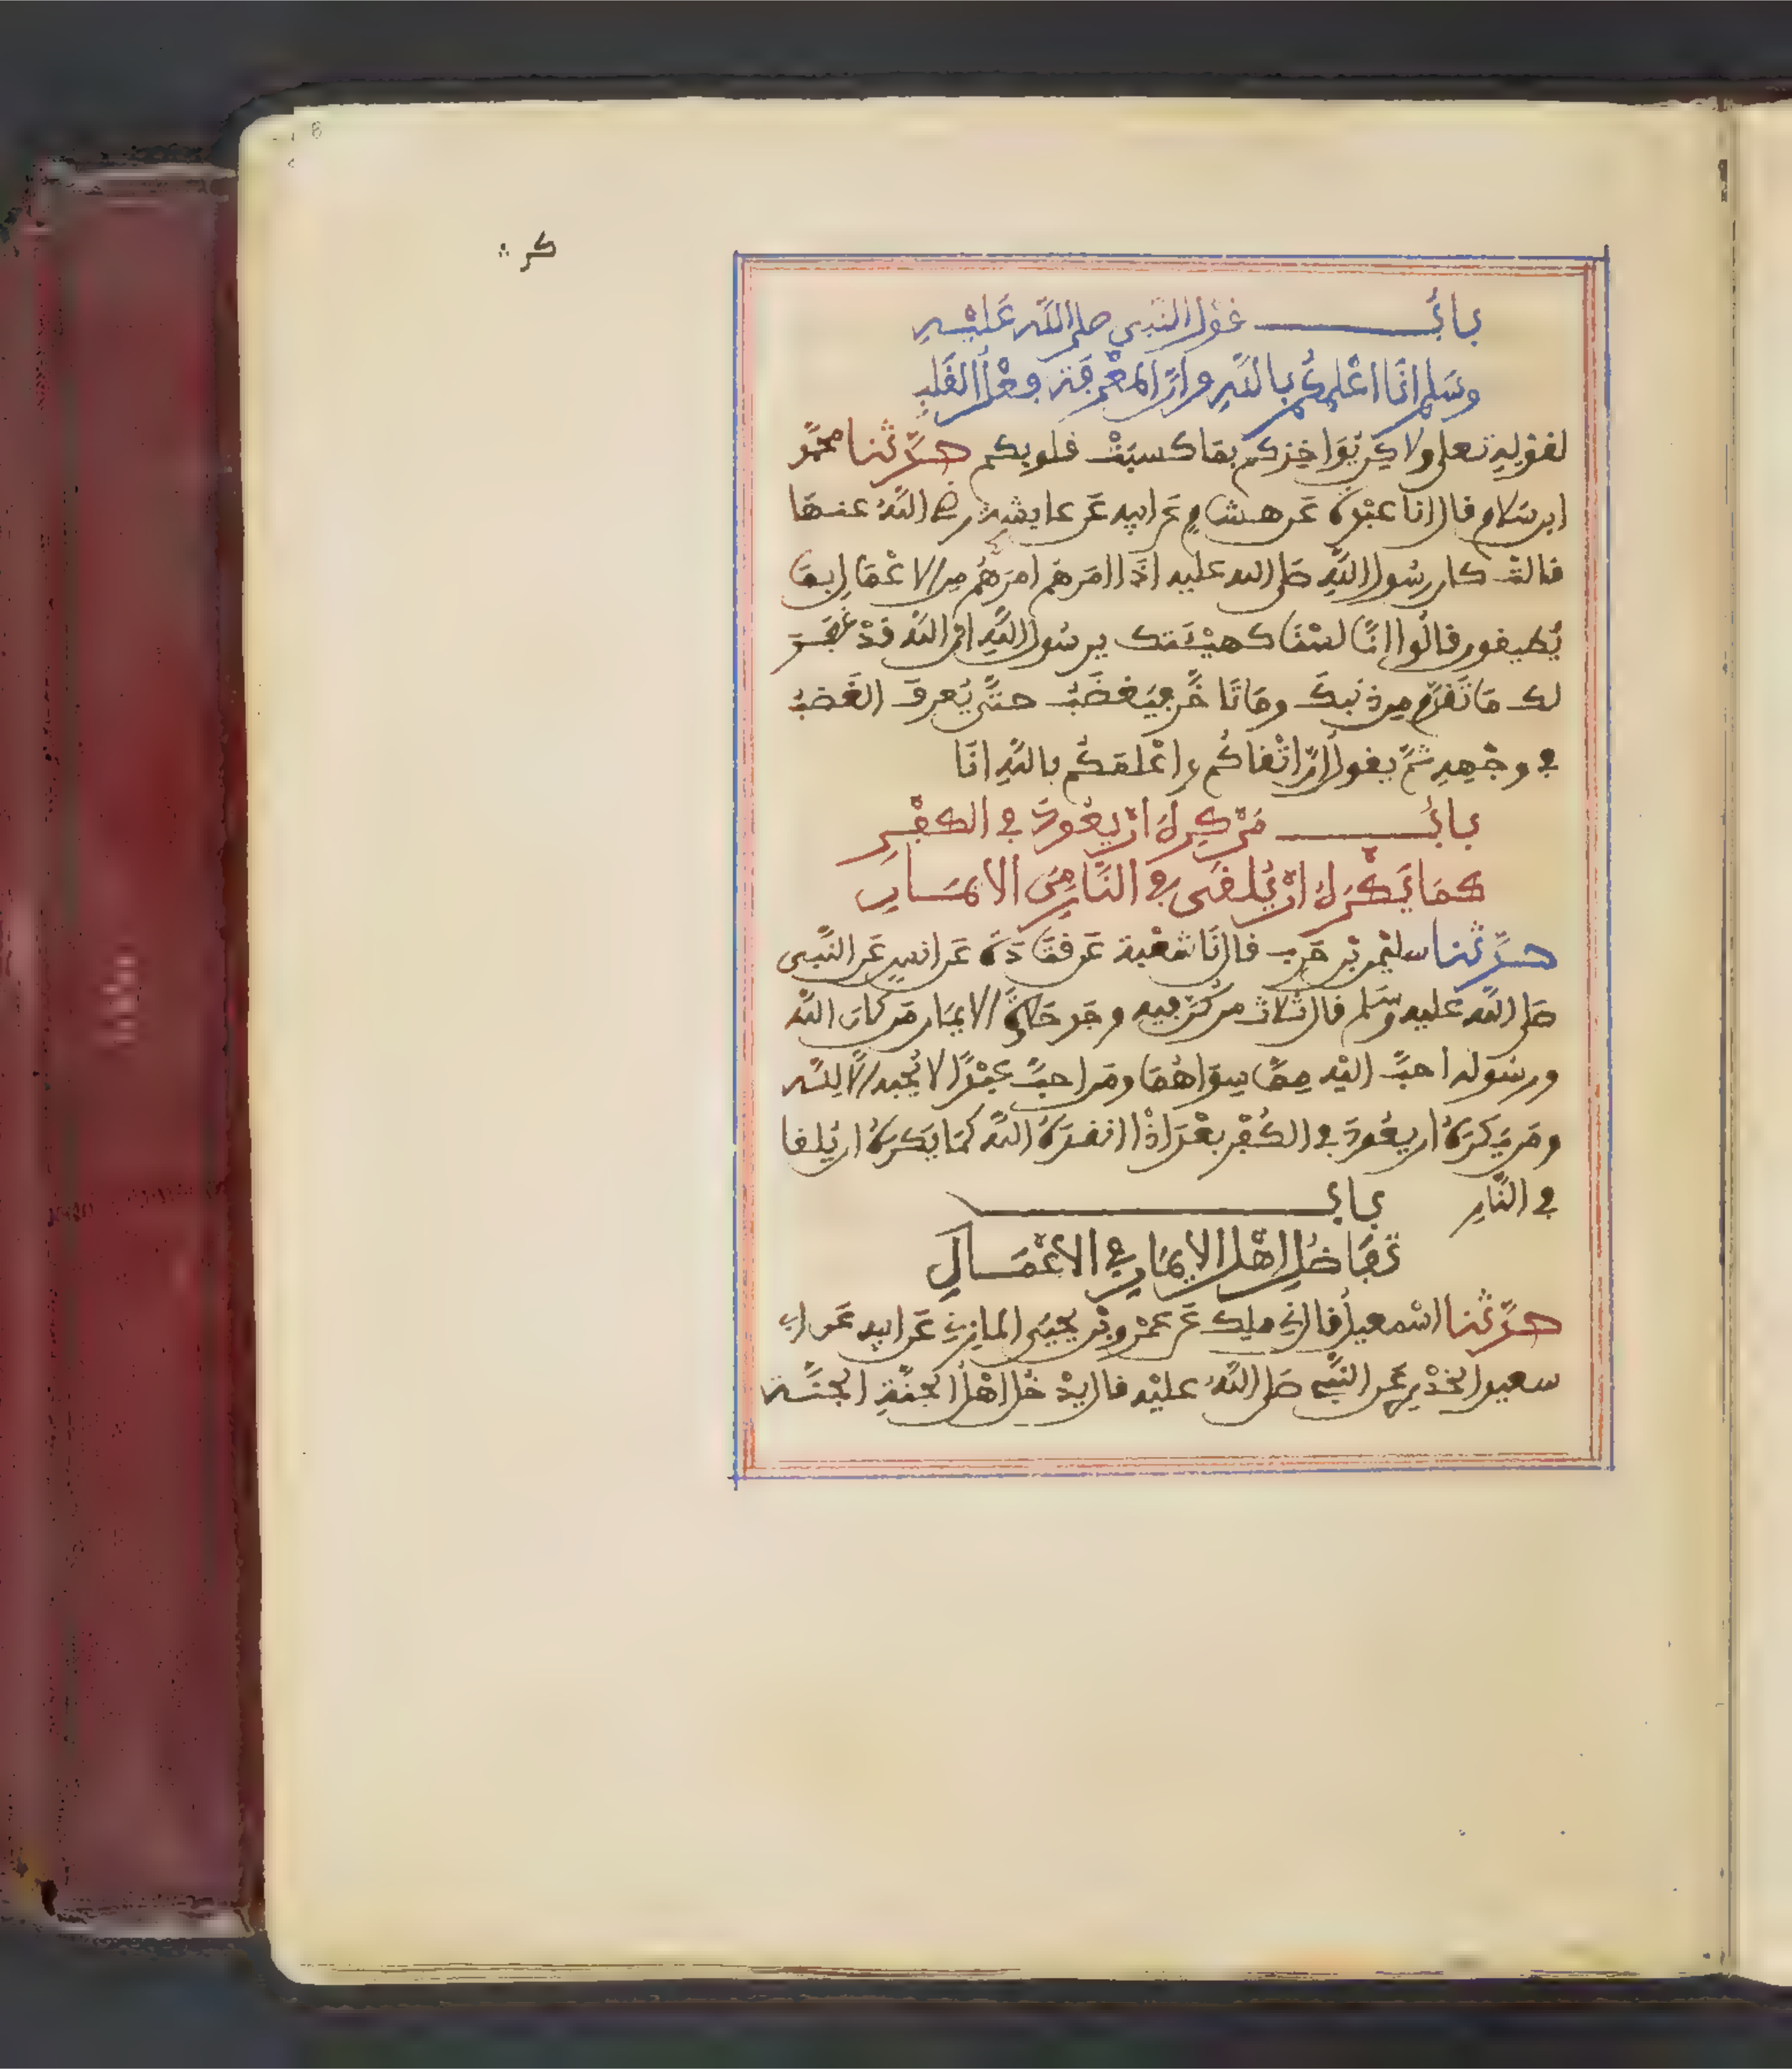 كر
باب قول النبي صلى الله عليه
وسلم انا اعلمكم بالله وان المعرفة فعل القلب
لقوله تعلى ولاكن يواخذكم بما كسبت قلوبكم حدثنا محمد
ابن سلام قال انا عبدة عن هشام عن ابيه عن عايشة رضي الله عنها
قالت كان رسول الله صلى الله عليه اذا امرهم امرهم من الاعمال بما
يطيقون قالوا انا لسنا كهيئتك يرسول الله ان الله قد غفر
لك ما تقدم من ذنبك وما تاخر فيغضب حتى يعرف الغضب
في وجهه ثم يقول ان اتقاكم واعلمكم بالله انا
باب من كره ان يعود في الكفر
كما يكره ان يلقى في النار من الايمان
حدثنا سليمن بن حرب قال نا شعبة عن قتادة عن انس عن النبي
صلى الله عليه وسلم قال ثلاث من كن فيه وجد حلاوة الايمان من كان الله
ورسوله احب اليه مما سواهما ومن احب عبدا لا يحبه الا لله
ومن يكره ان يعود في الكفر بعد اذ انقذه الله كما يكره ان يلقا
في النار باب
تفاضل اهل الايمان في الاعمال
حدثنا اسمعيل قال ني ملك عن عمرو بن يحيى المازني عن ابيه عن ابي
سعيد الخدري عن النبي صلى الله عليه قال يدخل اهل الجنة الجنة